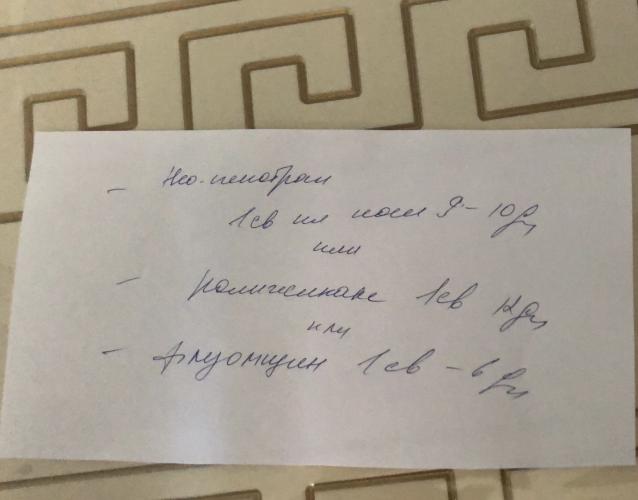 - Нео-пенотран
1 св на ночь 9-10 дн
или
- полижинакс 1 св 12 дн
или
- флуомизин 1 св - 6 дн